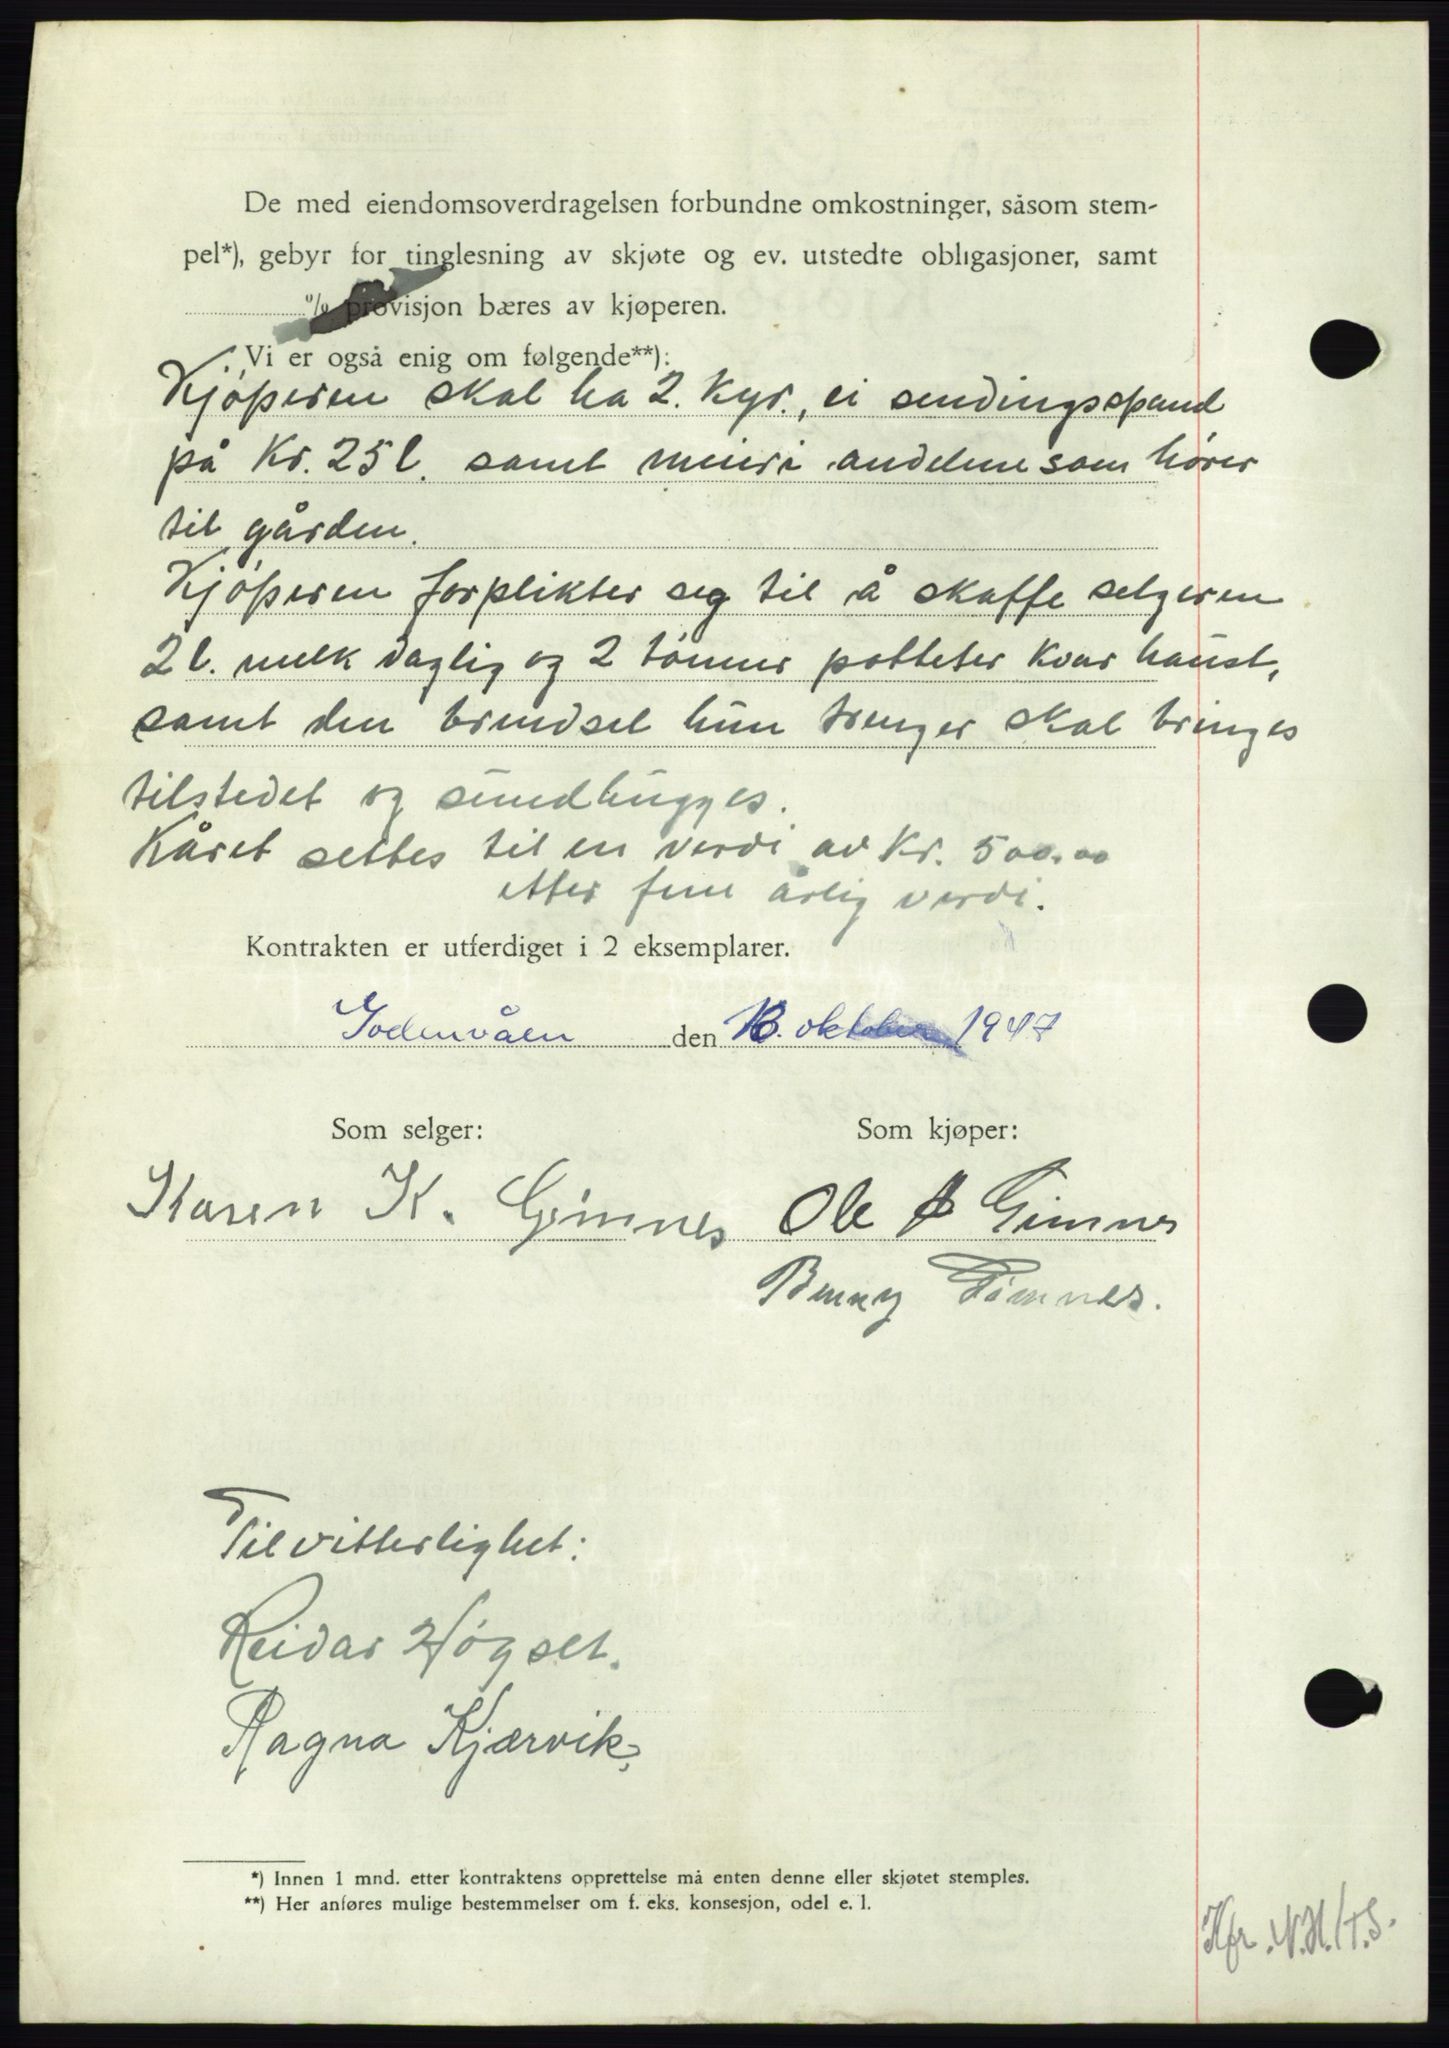 De med eiendomsoverdragelsen forbundne omkostninger, såsom stem-
pel*), gebyr for tinglesning av skjøte og ev. utstedte obligasjoner, samt
% provisjon bæres av kjøperen.
Vi er også enig om følgende**):
Kjöperen skal ha 2. Kyr., ei sendingsspand
på Kr. 25 l. samt meieri andelene som hører
til gården.
Kjöperen forplikter seg til å skaffe selgeren
2 l. melk daglig og 2 tönner potteter kvar haust,
samt den brendsel hun trenger skal bringes
tilstedet og sundhugges.
Kåret settes til en verdi av Kr. 500.00
etter fem årlig verdi.
Kontrakten er utferdiget i 2 eksemplarer.
den 18. oktober 1947
Som selger: Som kjøper:
Karen K. Gimnes Ole Gimnes
Benny Gimnes.
Til vitterlighet:
Reidar Högset.
Ragna Kjærvik,
*) Innen 1 mnd. etter kontraktens opprettelse må enten denne eller skjøtet stemples.
**) Her anføres mulige bestemmelser om f. eks. konsesjon, odel e. l.
Kfr. N.H./T.S.